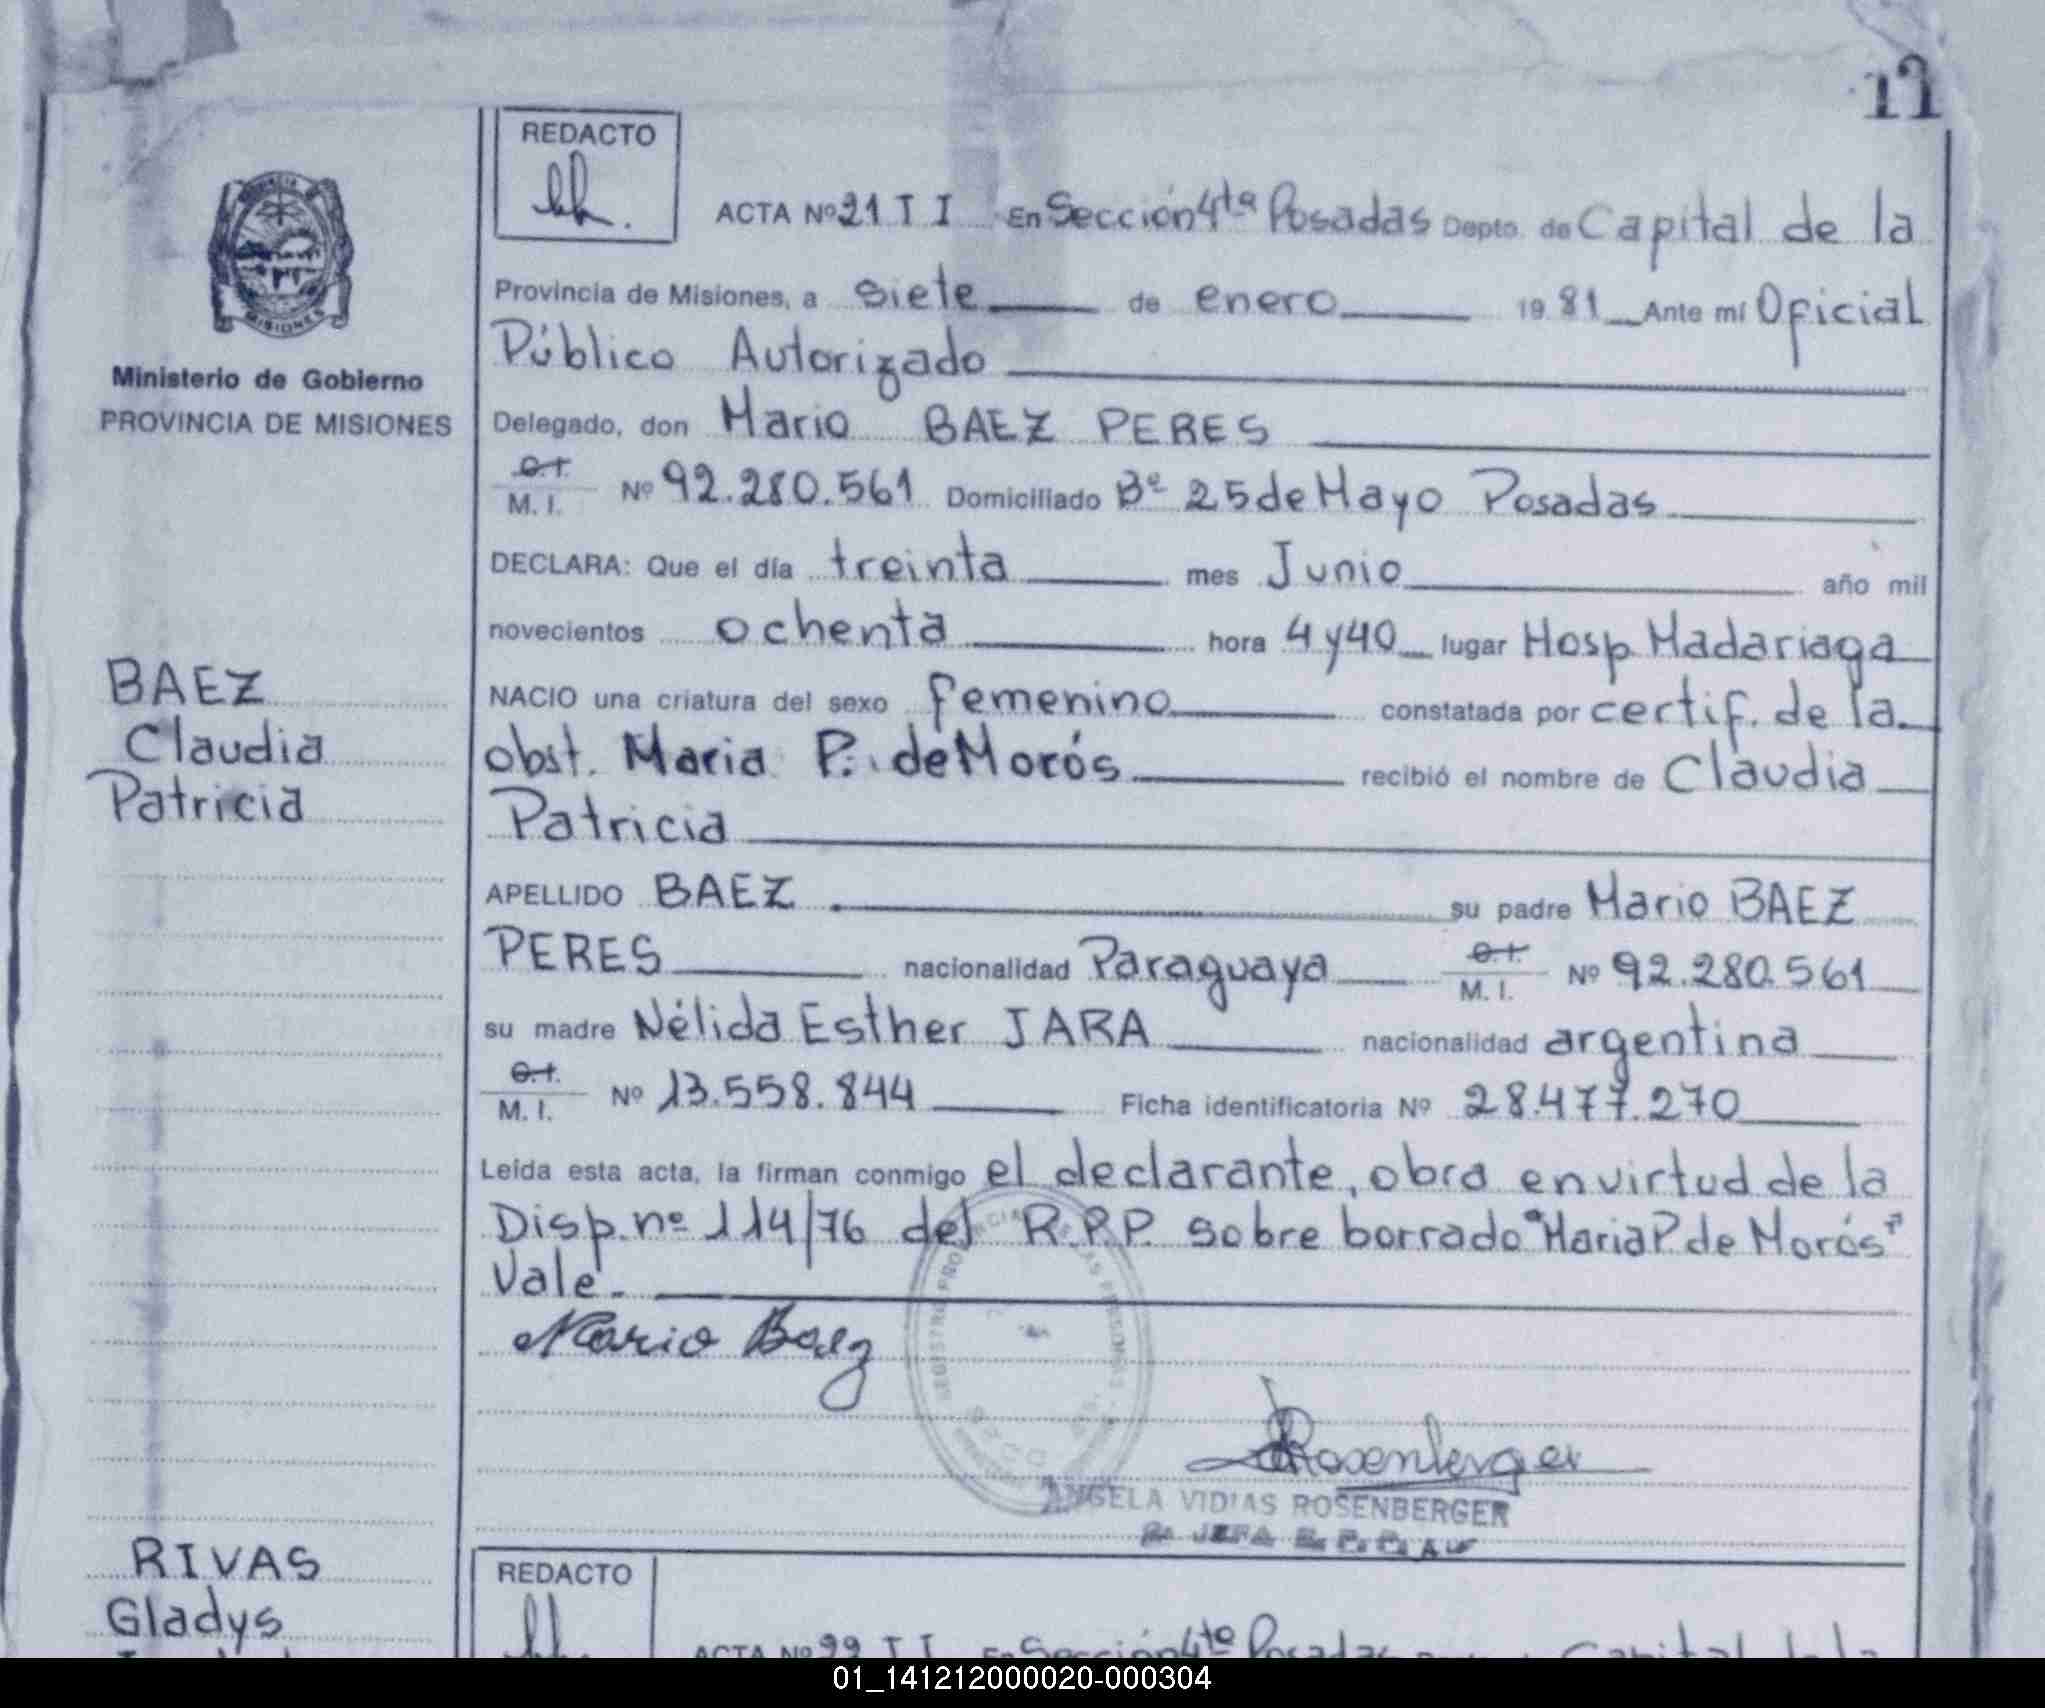 17
REDACTO
ACTA Nº 21 T I En Sección 4ta Posadas Depto. de Capital de la
Provincia de Misiones, a siete de enero 19 81 Ante mí Oficial
Público Autorizado
MISIONES
Ministerio de Gobierno
PROVINCIA DE MISIONES
Delegado, don Mario BAEZ PERES
C.I.
M. I. Nº 92.280.561 Domiciliado Bº 25 de Mayo Posadas
DECLARA: Que el día treinta mes Junio año mil
novecientos ochenta hora 4 y 40 lugar Hosp Madariaga
BAEZ
Claudia
Patricia
NACIO una criatura del sexo femenino constatada por certif. de la
obst. Maria P. de Morós recibió el nombre de Claudia
Patricia
APELLIDO BAEZ su padre Mario BAEZ
PERES nacionalidad Paraguaya C.I. M. I. Nº 92.280.561
su madre Nélida Esther JARA nacionalidad argentina
C.I.
M. I. Nº 13.558.844 Ficha identificatoria Nº 28.477.270
Leída esta acta, la firman conmigo el declarante, obra en virtud de la
Disp. nº 114/76 del R.P.P. sobre borrado "Maria P de Morós"
Vale.
Mario Baez
Rosenberger
ANGELA VIDIAS ROSENBERGER
JEFA R. P. P.
RIVAS
Gladys
REDACTO
ACTA Nº 22 T I En Sección 4ta Posadas Capital de la
01_141212000020-000304